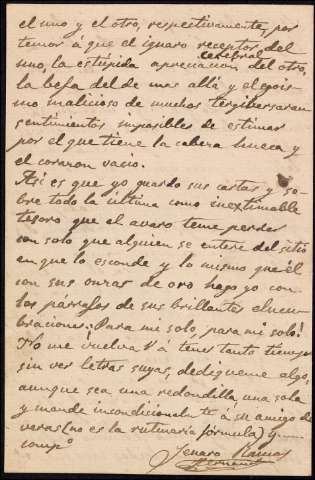 el uno y el otro, respectivamente, por
temor á que el ignaro receptor del
uno, la estúpida apreciacion cerebral del otro,
la befa del de mas allá y el egois-
mo malicioso de muchos tergiversaran
sentimientos imposibles de estimar
por el que tiene la cabeza hueca y
el corazon vacio.
Asi es que yo guardo sus cartas y so-
bre todo la última como inextimable
tesoro que el avaro teme perder
con solo que alguien se entere del sitio
en que lo esconde y lo mismo que él
con sus onzas de oro hago yo con
los párrafos de sus brillantes elucu-
braciones: ¡Para mi solo, para mi solo!
No me vuelva V á tener tanto tiempo
sin ver letras suyas, dedíqueme algo,
aunque sea una redondilla, una sola
y mande incondicionalte á su amigo de
veras (no es la rutinaria fórmula) y
compº
Genaro Ramos
Hernandez